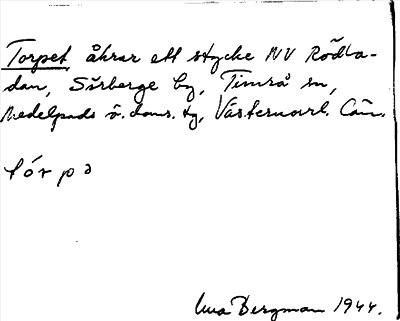 Torpet åkrar ett stycke NV Rödla-
dan, Sörberge by, Timrå sn,
Medelpads ö. doms. tg, Västernorrl. län.
tórpə
Una Bergman 1944.